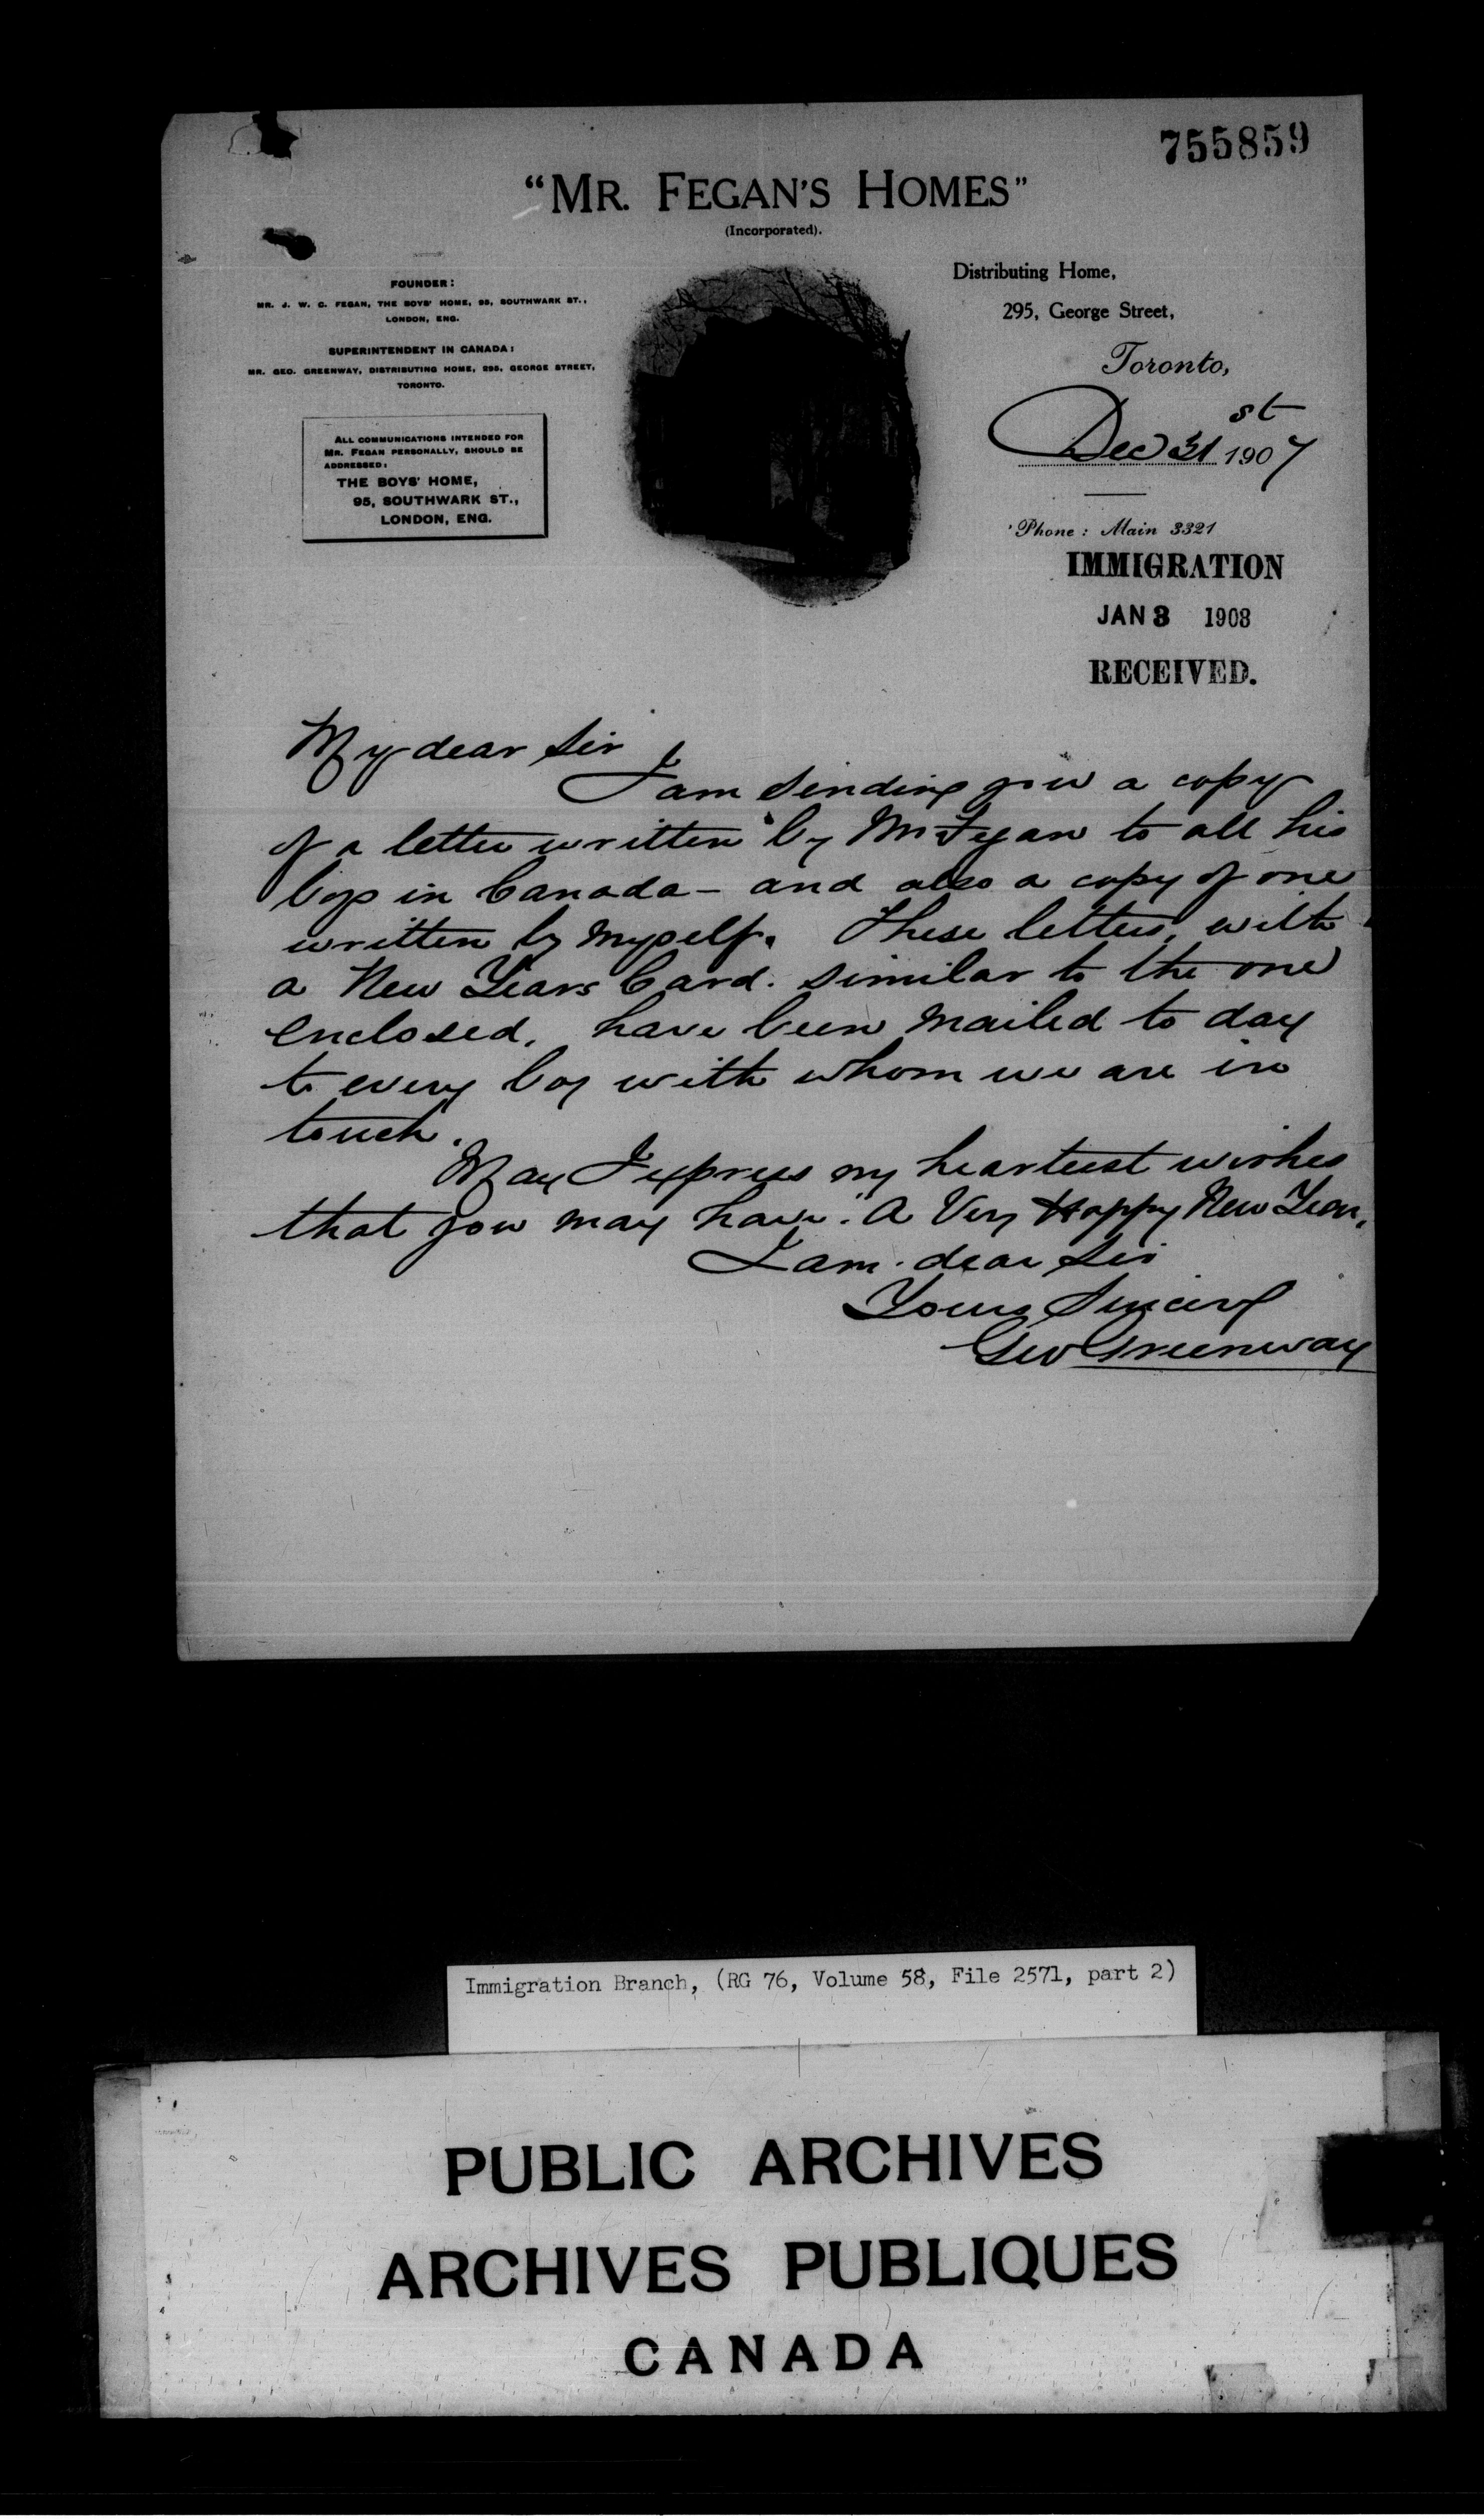 755859
"MR. FEGAN'S HOMES"
(Incorporated).
FOUNDER:
MR. J. W. C. FEGAN, THE BOYS' HOME, 95, SOUTHWARK ST.,
LONDON, ENG.
SUPERINTENDENT IN CANADA:
MR. GEO. GREENWAY, DISTRIBUTING HOME, 295, GEORGE STREET,
TORONTO.
ALL COMMUNICATIONS INTENDED FOR
MR. FEGAN PERSONALLY, SHOULD BE
ADDRESSED:
THE BOYS' HOME,
95, SOUTHWARK ST.,
LONDON, ENG.
Distributing Home,
295, George Street,
Toronto,
Dec 31st 1907
Phone: Main 3321
IMMIGRATION
JAN 3 1908
RECEIVED.
My dear Sir
I am sending you a copy
of a letter written by Mr Fegan to all his
boys in Canada - and also a copy of one
written by myself. These letters, with
a New Years Card. similar to the one
enclosed, have been mailed to day
to every boy with whom we are in
touch.
May I express my heartiest wishes
that you may have "A Very Happy New Year,
I am. dear Sir
Yours Sincerely
Geo Greenway
Immigration Branch, (RG 76, Volume 58, File 2571, part 2)
PUBLIC ARCHIVES
ARCHIVES PUBLIQUES
CANADA